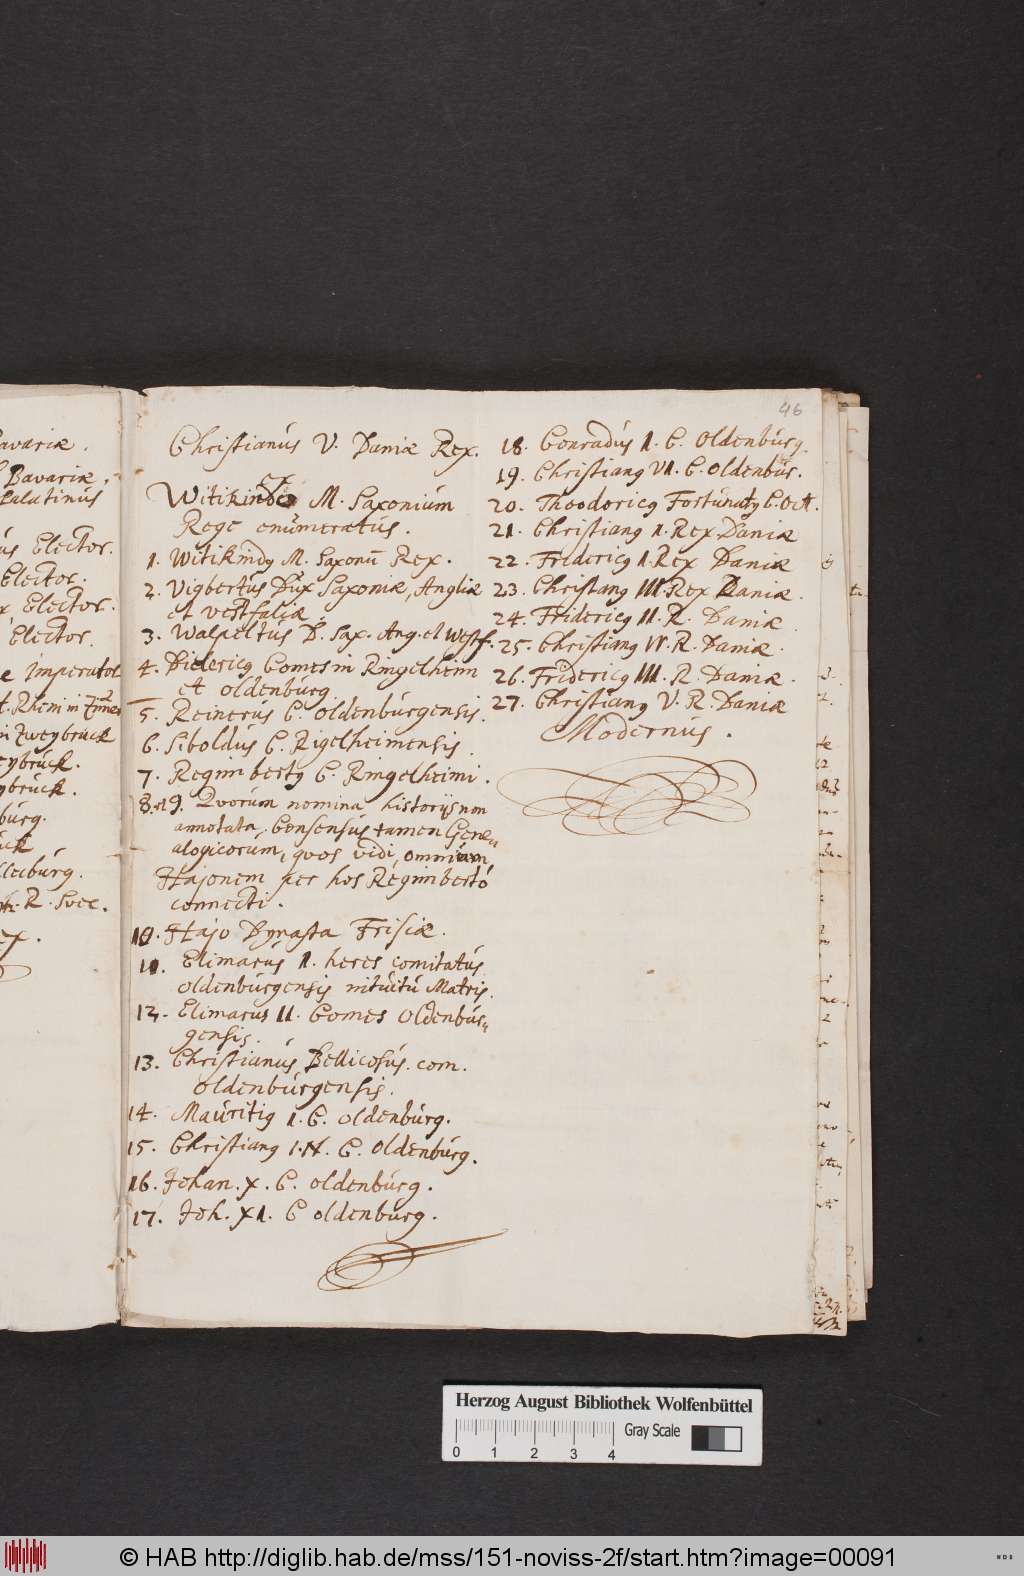 avariæ.
Bavariæ.
Palatinus
us Elector.
Elector.
x Elector.
Elector.
e Imperator
n Zweybrück
eybrück.
ybrück.
burg.
ück
burg.
R. Svec.
ex.
46
Christianus V. Daniæ Rex.
Witikindo M. Saxonium
Rege enumeratus.
1. Witikindꝯ M. Saxonū Rex.
2. Vigbertus Dux Saxoniæ, Angliæ
et vestfaliæ
3. Walpeltus D. Sax. Ang. et Westf.
4. Dietericꝯ Comes in Ringelheim
et Oldenburg.
5. Reinerus C. Oldenburgensis.
6. Siboldus C. Rigelheimensis.
7. Regimbertꝯ C. Ringelheimi.
8. et 9. Qvorum nomina historijs non
annotata. Consensus tamen Gene-
alogicorum, qvos vidi, omnium
Hajonem per hos Regimberto
connecti.
10. Hajo Dynasta Frisiæ.
11. Elimarus 1. heres comitatus
Oldenburgensis intuitu Matris.
12. Elimarus II. Comes Oldenbur-
gensis.
13. Christianus Bellicosus. com.
Oldenburgensis.
14. Mauritiꝯ 1. C. Oldenburg.
15. Christianꝯ C. Oldenburg.
16. Johan. X. C. Oldenburg.
17. Joh. XI. C Oldenburg.
18. Conradus 1. C. Oldenburg.
19. Christianꝯ VI. C. Oldenbur.
20. Theodoricꝯ Fortunatꝯ C.
21. Christianꝯ 1. Rex Daniæ
22. Fridericꝯ 1. Rex Daniæ
23. Christianꝯ III. Rex Daniæ.
24. Fridericꝯ II. R. Daniæ.
25. Christianꝯ IV. R. Daniæ.
26. Fridericꝯ III. R. Daniæ.
27. Christianꝯ V. R. Daniæ
Modernus.
Herzog August Bibliothek Wolfenbüttel
Gray Scale
0 1 2 3 4
© HAB http://diglib.hab.de/mss/151-noviss-2f/start.htm?image=00091